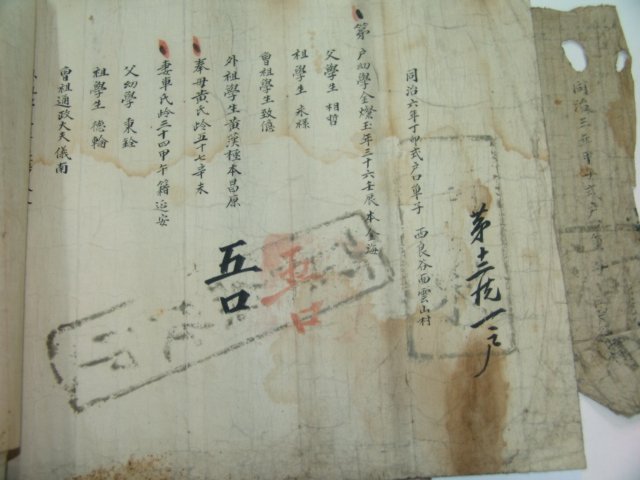 同治六年丁卯式戶口單子 西良谷面雲山村
第十三統一戶
第 戶幼學金燦玉年三十六壬辰本金海
父學生 相哲
祖學生
曾祖學生致億
外祖學生黃漢 本昌原
奉母黃氏齡五十七辛未
妻車氏齡三十四甲午籍延安
父幼學 秉銓
祖學生 德輪
曾祖通政大夫儀南
五口
五口
同治三年甲子式戶